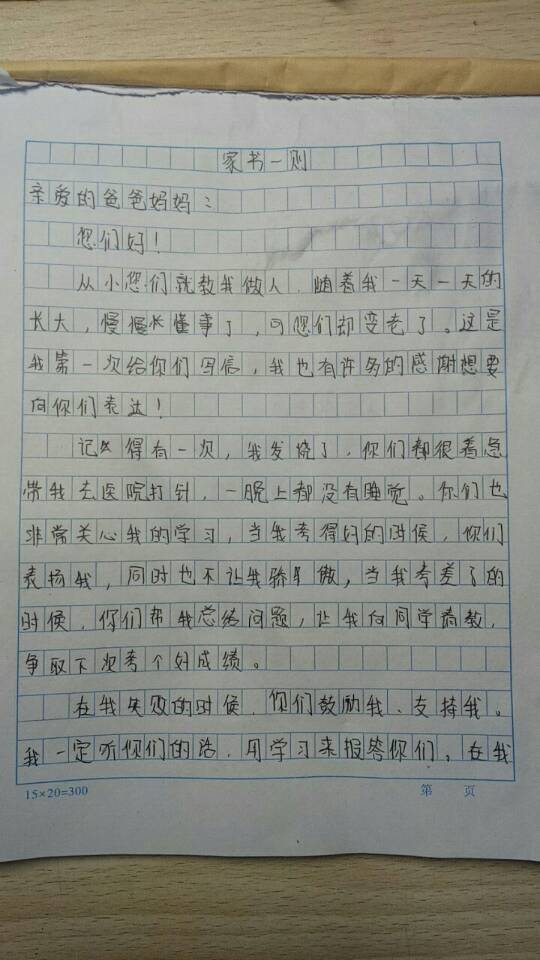 家书一则
亲爱的爸爸妈妈：
您们好！
从小您们就教我做人，随着我一天一天的
长大，慢慢长懂事了，可您们却变老了。这是
我第一次给你们写信，我也有许多的感谢想要
向你们表达！
记得有一次，我发烧了，你们都很着急
带我去医院打针，一晚上都没有睡觉。你们也
非常关心我的学习，当我考得好的时候，你们
表扬我，同时也不让我骄傲，当我考差了的
时候，你们帮我总结问题，让我向同学请教，
争取下次考个好成绩。
在我失败的时候，你们鼓励我、支持我。
我一定听你们的话，用学习来报答你们，在我
15×20=300
第 页